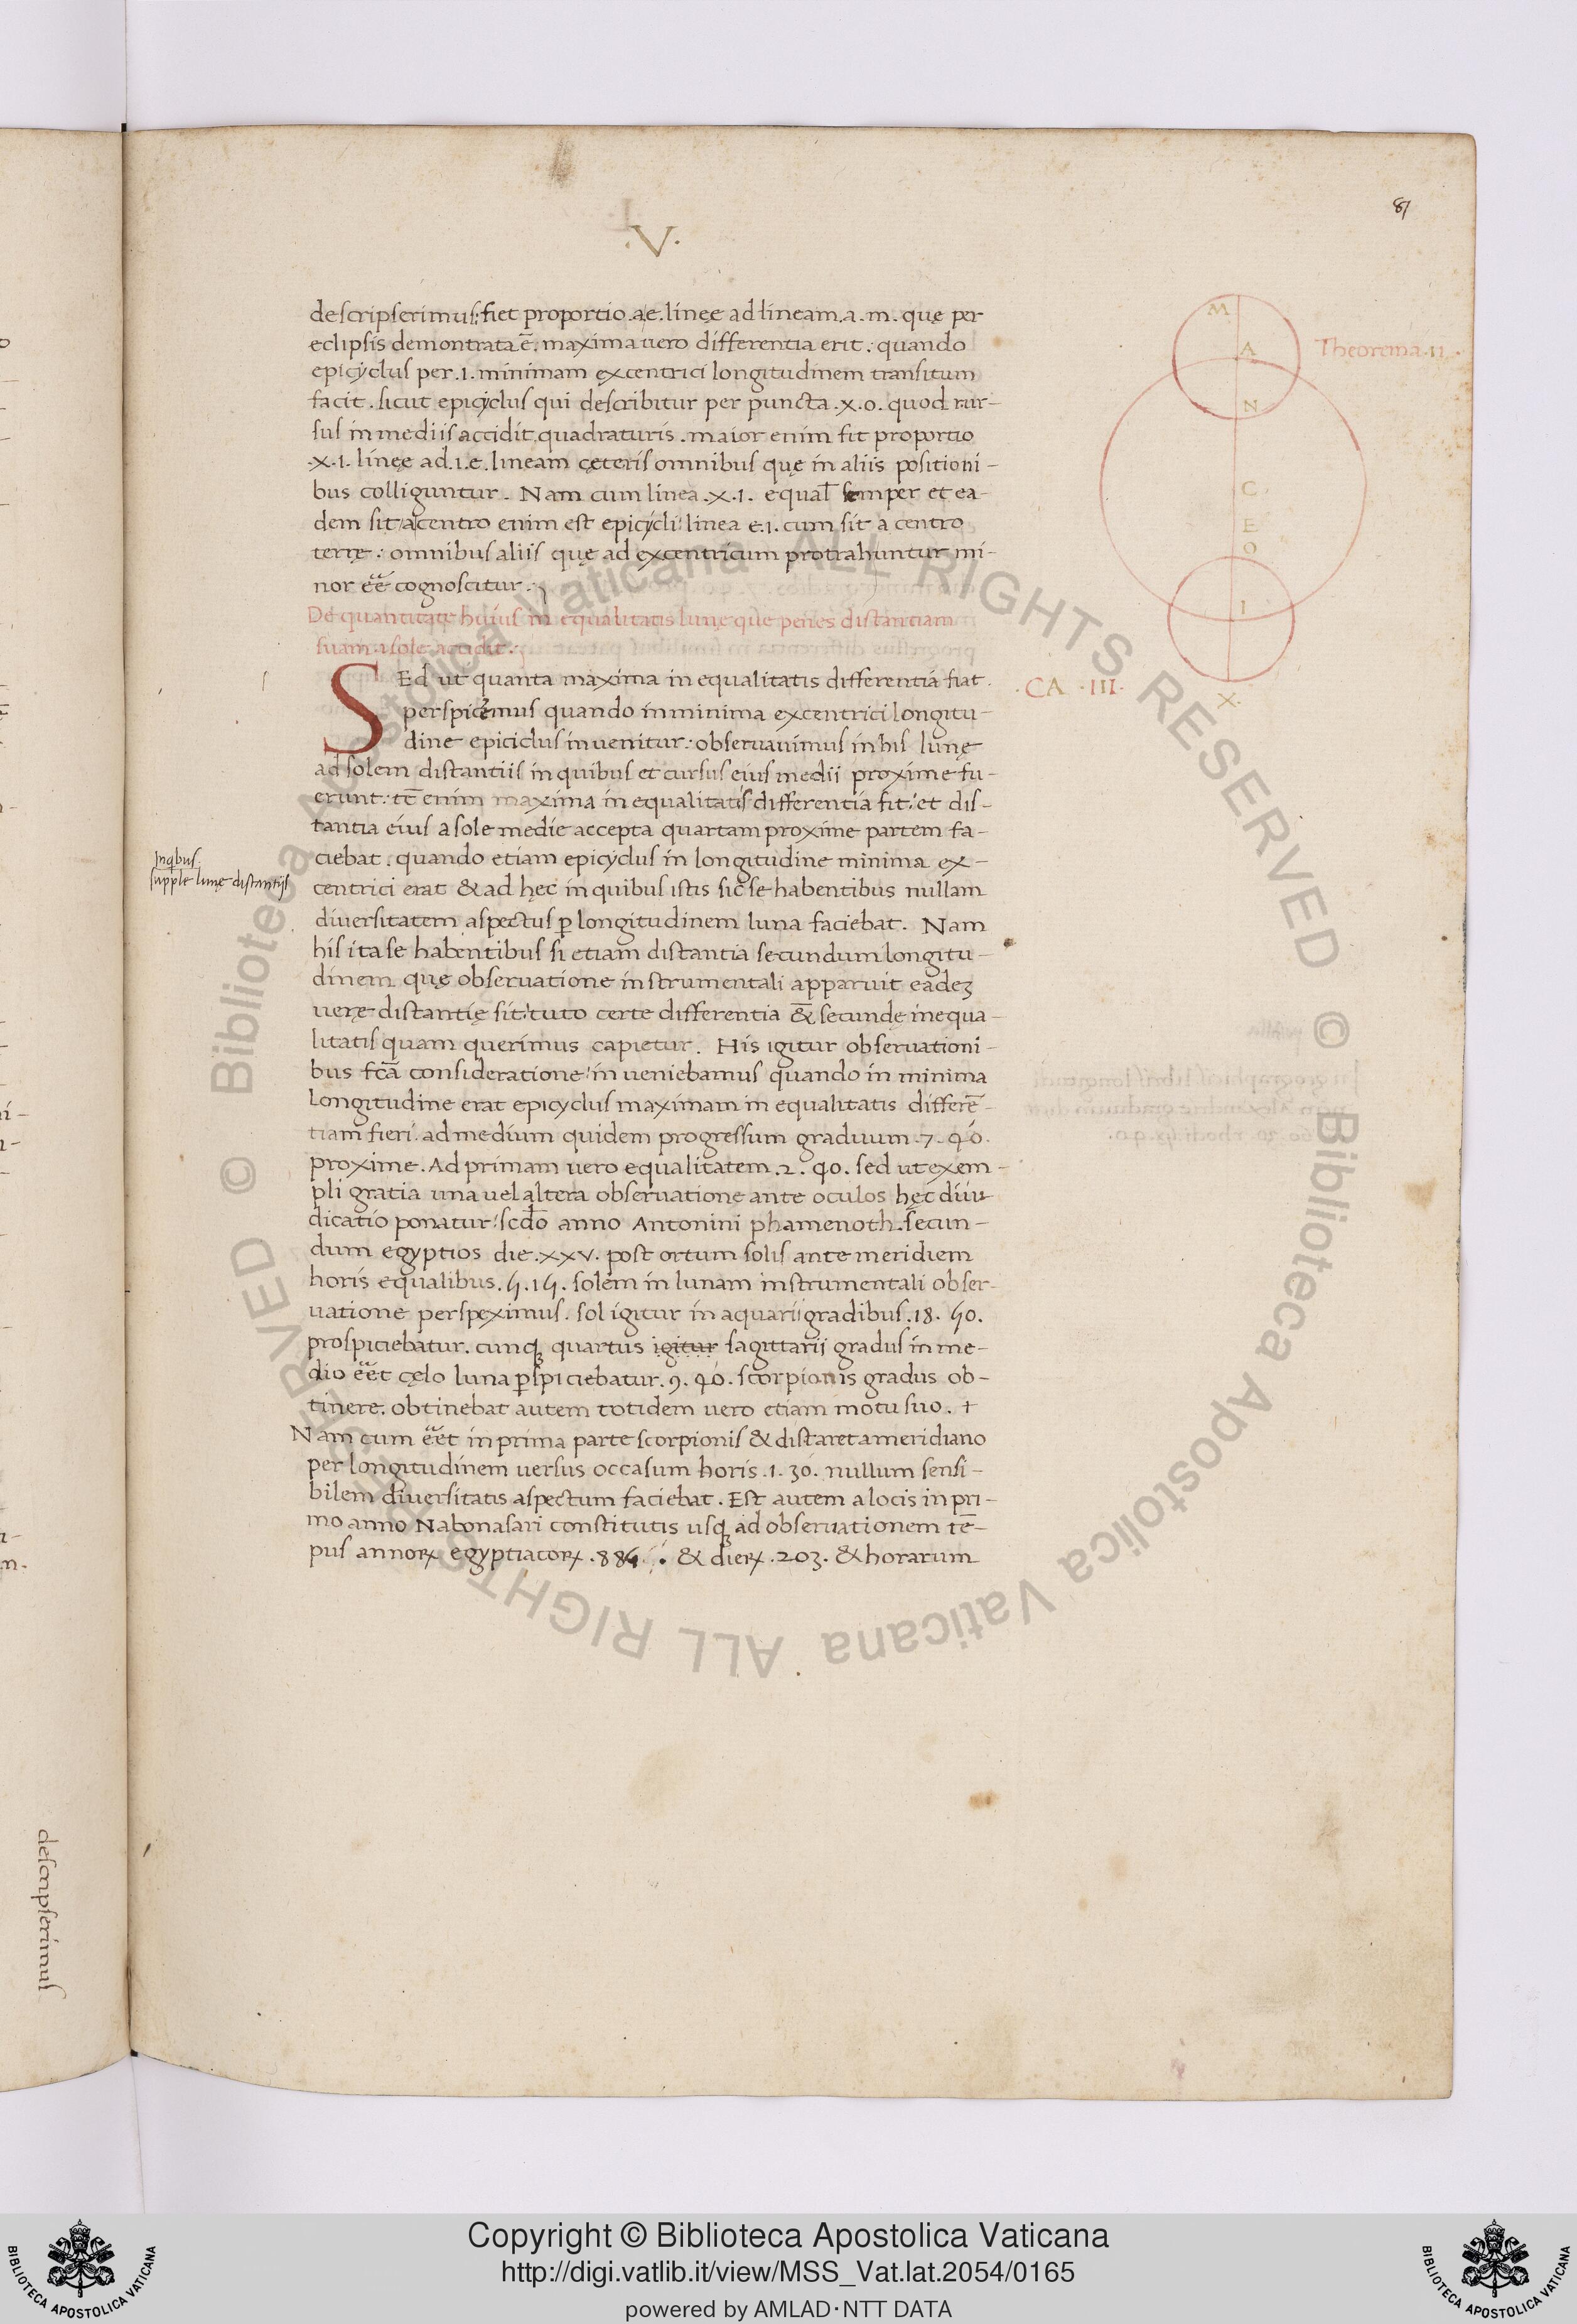 81
.V.
descripserimus: fiet proportio .a e. linęę ad lineam .a.m. quę per
eclipsis demontrata ē. maxima uero differentia erit: quando
epicyclus per .1. minimam excentrici longitudinem transitum
facit. sicut epicyclus qui describitur per puncta .x.o. quod rur-
sus in mediis accidit quadraturis. maior enim fit proportio
.x.1. linęę ad .1.e. lineam cęteris omnibus quę in aliis positioni-
bus colliguntur. Nam cum linea .x.1. equal semper et ea-
dem sit a centro enim est epicycli: linea e.1. cum sit a centro
terrę: omnibus aliis quę ad excentricum protrahuntur mi-
nor eē cognoscitur.
De quantitate huius in equalitatis lunę quę penes distantiam
suam a sole accidit.
SEd ut quanta maxima in equalitatis differentia fiat
perspicemus quando in minima excentrici longitu-
dine epiciclus inuenitur: obseruauimus in his lunę
ad solem distantiis in quibus et cursus eius medii proxime fu-
erunt: tc̄ enim maxima in equalitatis differentia fit: et dis-
tantia eius a sole medie accepta quartam proxime partem fa-
ciebat. quando etiam epicyclus in longitudine minima ex-
centrici erat & ad hęc in quibus istis sic se habentibus nullam
diuersitatem aspectus ꝑ longitudinem luna faciebat. Nam
his ita se habentibus si etiam distantia secundum longitu-
dinem quę obseruatione instrumentali apparuit eadeʒ
uerę distantię sit: tuto certe differentia & secundę inequa-
litatis quam querimus capietur. His igitur obseruationi-
bus fcā consideratione: in ueniebamus quando in minima
Longitudine erat epicyclus maximam in equalitatis differē-
tiam fieri. ad medium quidem progressum graduum .7. 40.
proxime. Ad primam uero equalitatem .2. 40. sed ut exem-
pli gratia una uel altera obseruatione ante oculos hęc diiu
dicatio ponatur: scdo anno Antonini phamenoth secun-
dum egyptios die .xxv. post ortum solis ante meridiem
horis equalibus .5.15. solem in lunam instrumentali obser-
uatione perspeximus. sol igitur in aquarii gradibus .18. 50.
prospiciebatur. cunqꝫ quartus igitur sagittarii gradus in me-
dio eēt cęlo luna ꝑspiciebatur .9. 40. scorpionis gradus ob-
tinere. obtinebat autem totidem uero etiam motu suo. +
Nam cum eēt in prima parte scorpionis & distaret a meridiano
per longitudinem uersus occasum horis .1. 30. nullum sensi-
bilem diuersitatis aspectum faciebat. Est autem a locis in pri-
mo anno Nabonasari constitutis usqꝫ ad obseruationem tē-
pus annoꝝ egyptiacoꝝ .885. & dieꝝ .203. & horarum
Inqbus
supple lunę distantijs
Theorema .II.
M
A
N
C
E
O
I
X
.CA .III.
descripserimus
Copyright © Biblioteca Apostolica Vaticana
http://digi.vatlib.it/view/MSS_Vat.lat.2054/0165
powered by AMLAD·NTT DATA
BIBLIOTECA APOSTOLICA VATICANA
BIBLIOTECA APOSTOLICA VATICANA
© Biblioteca Apostolica Vaticana ALL RIGHTS RESERVED
© Biblioteca Apostolica Vaticana ALL RIGHTS RESERVED